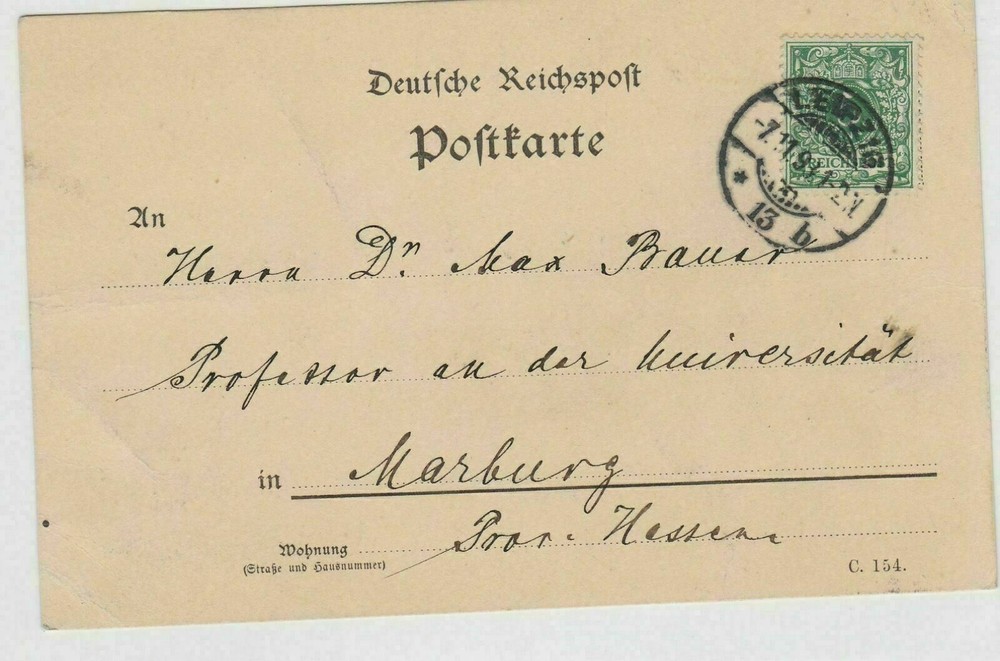 Deutsche Reichspost
Postkarte
LEIPZIG
13 b
REICH
An
Herrn Dr. Max Bauer
Professor an der Universität
in Marburg
Prov. Hessen.
Wohnung
(Straße und Hausnummer)
C. 154.